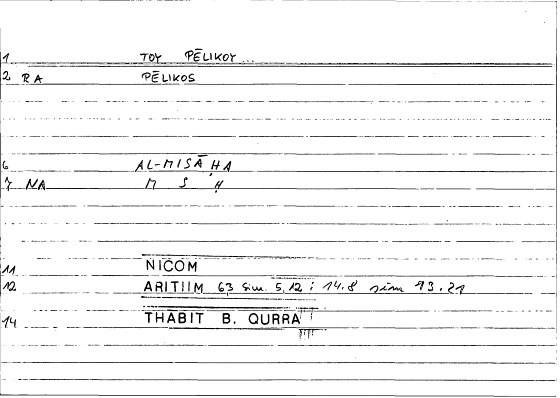 1 TOY PĒLIKOY ...
2 RA PĒLIKOS
6 AL-MISĀḤA
7 NA M S Ḥ
11 NICOM
12 ARITIIM 63 sim. 5,12; 14.8 sim 93.21
14 THĀBIT B. QURRA